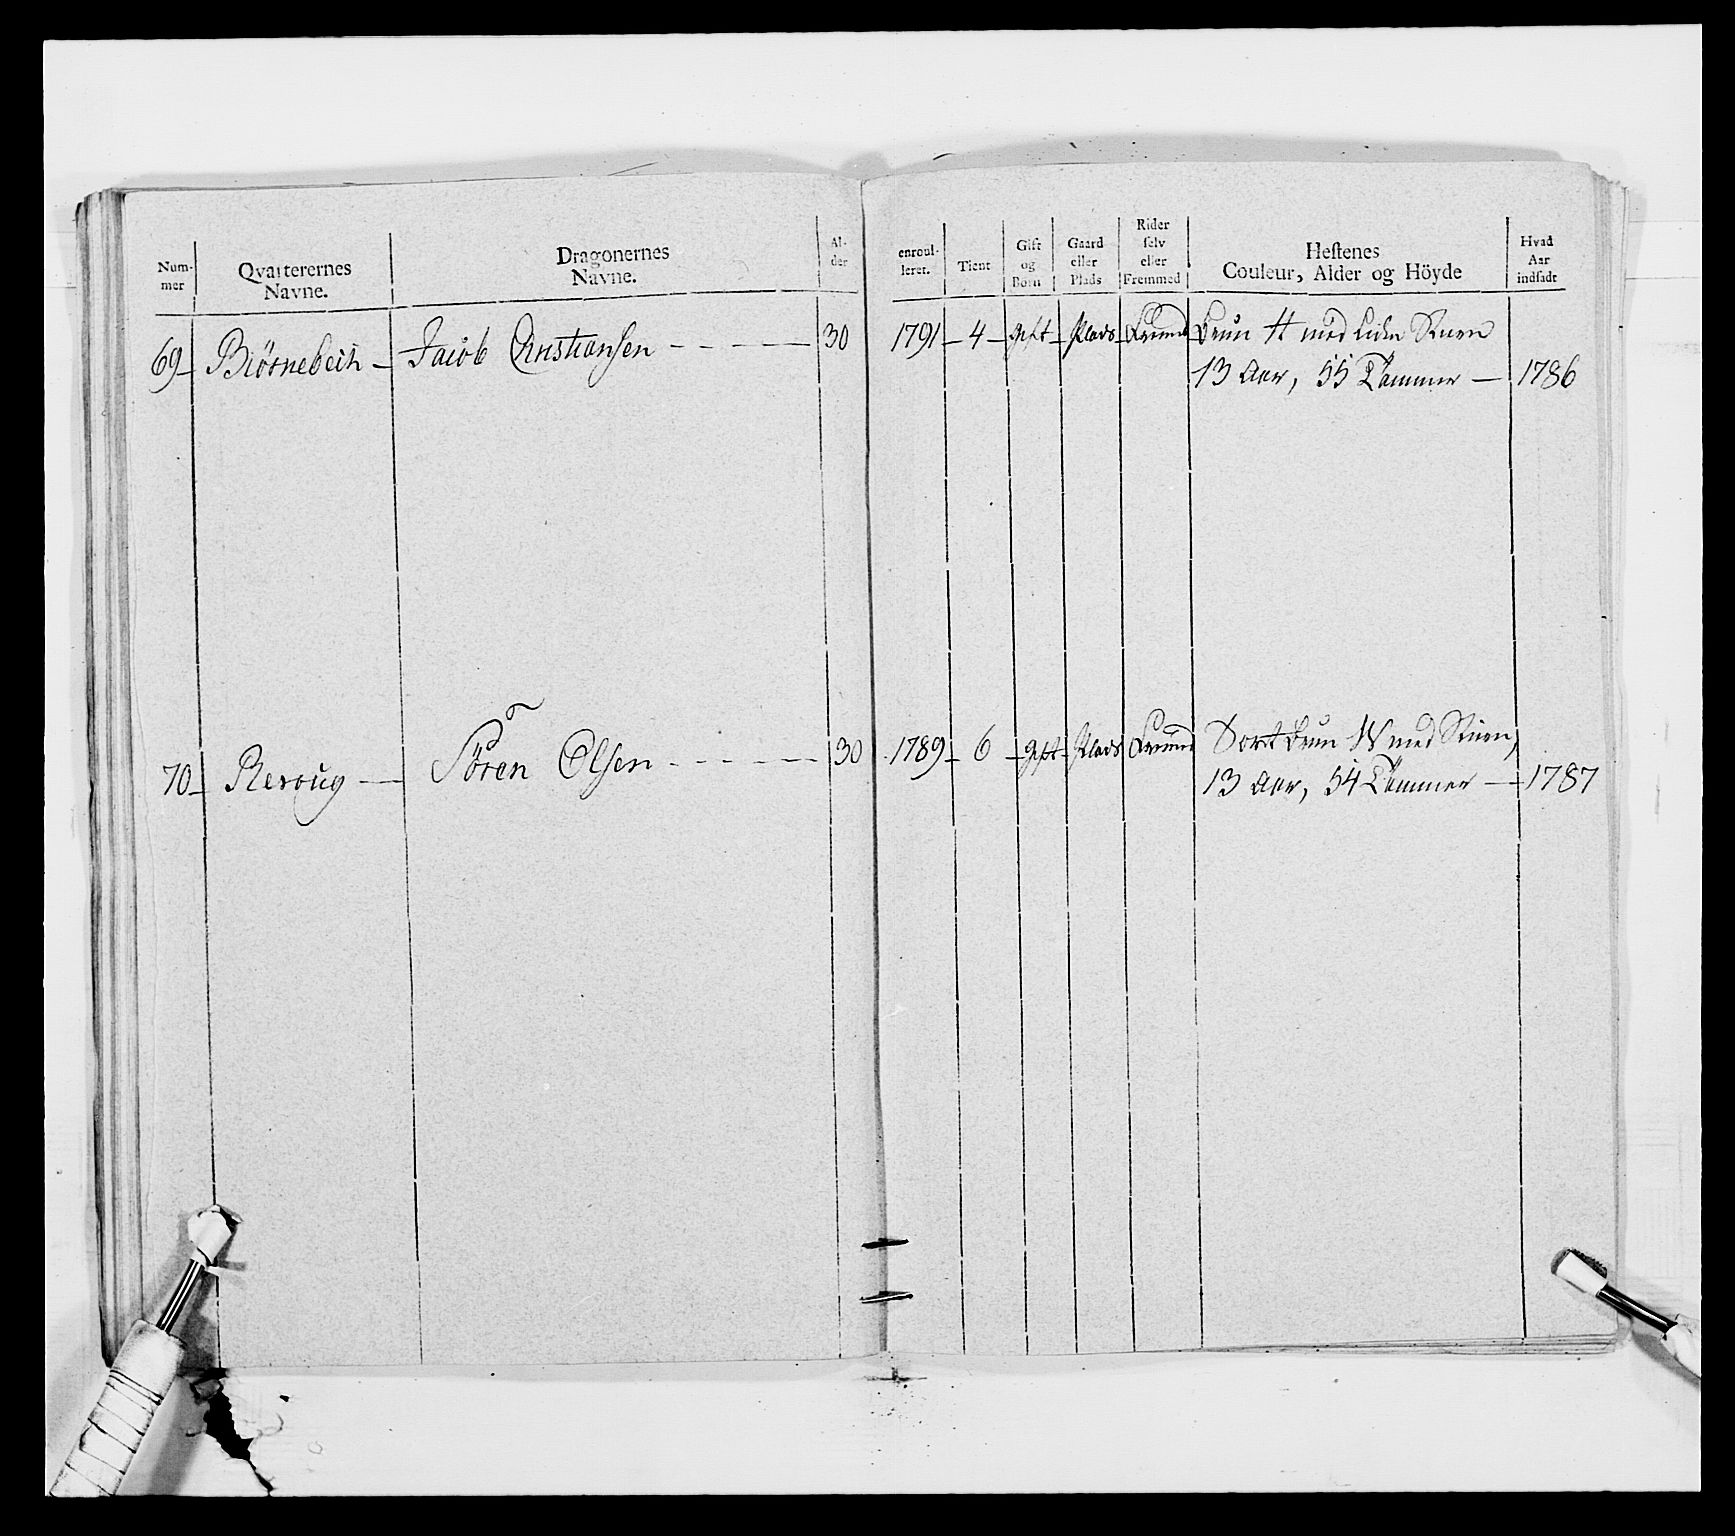 Num-
mer
Qvarterernes
Navne.
Dragonernes
Navne.
Al-
der
enroul-
leret.
Tient
Gift
og
Børn
Gaard
eller
Plads
Rider
selv
eller
Fremmed
Hestenes
Couleur, Alder og Höyde
Hvad
Aar
indsadt
69 – Biörnebeih – Jacob Christiansen - - - - - 30 1791 – 4 – gift – Plads – Fremmed Brun H med liden Stiern
13 Aar, 55 Tommer — 1786
70 – Reroug — Sören Olsen - - - - - 30 1789 – 6 – gift – Plads Fremmed Sort Brun W med Stiern,
13 Aar, 54 Tommer — 1787